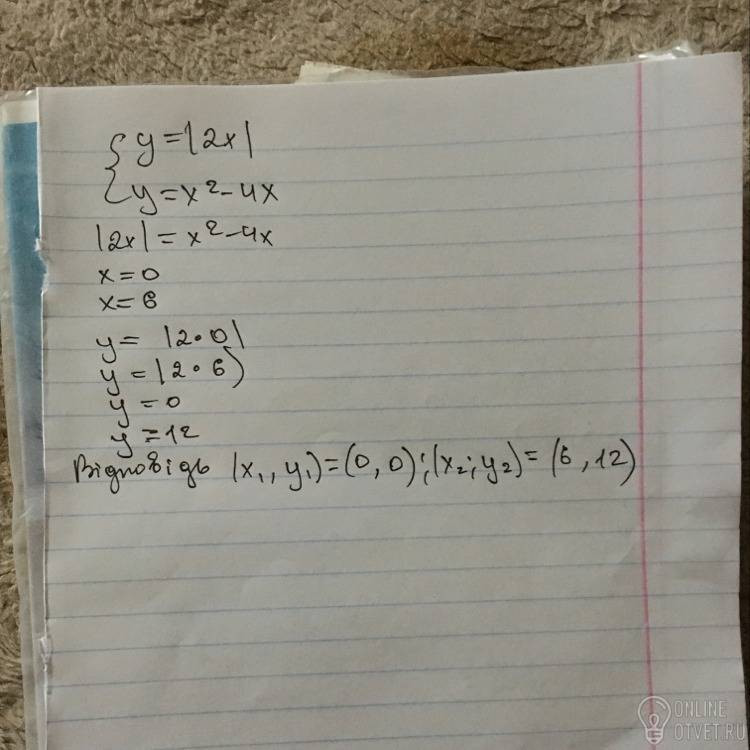 { y = |2x|
y = x² - 4x
|2x| = x² - 4x
x = 0
x = 6
y = |2•0|
y = |2•6)
y = 0
y = 12
Відповідь (x₁, y₁) = (0, 0); (x₂; y₂) = (6, 12)
ONLINE
OTVET.RU